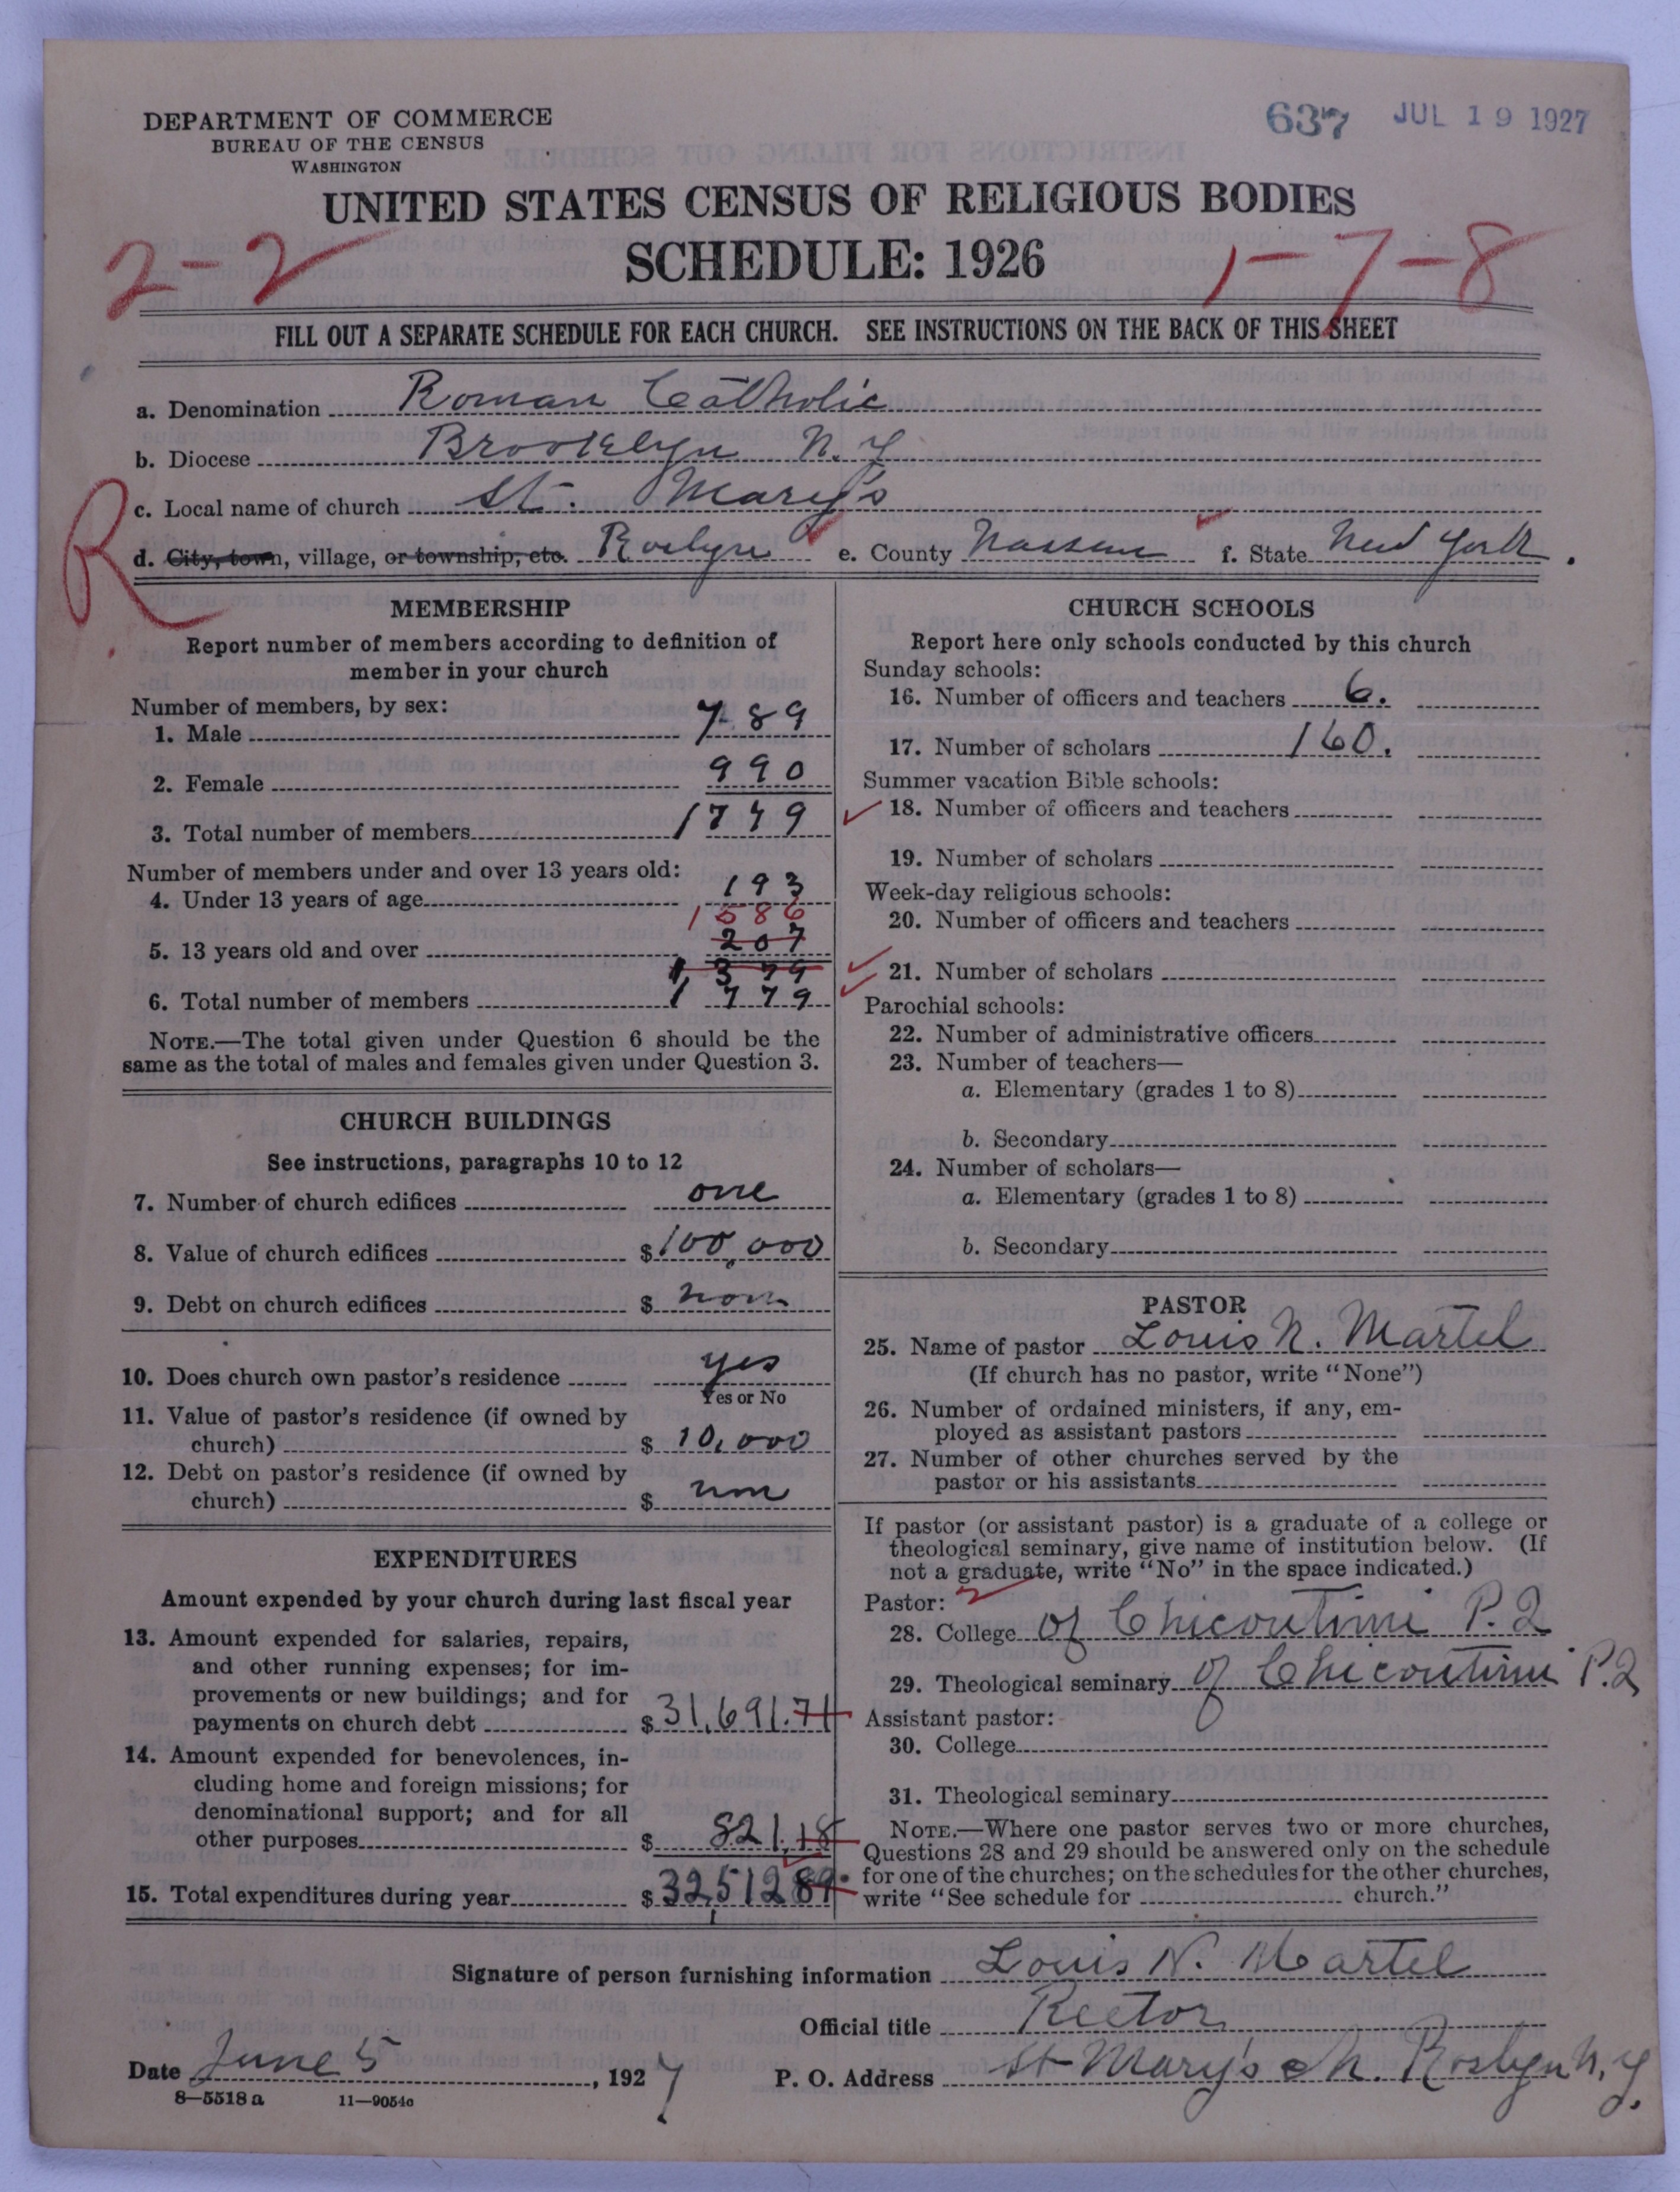 DEPARTMENT OF COMMERCE
BUREAU OF THE CENSUS
WASHINGTON
637 JUL 19 1927
UNITED STATES CENSUS OF RELIGIOUS BODIES
SCHEDULE: 1926
2-2
1-7-8
FILL OUT A SEPARATE SCHEDULE FOR EACH CHURCH. SEE INSTRUCTIONS ON THE BACK OF THIS SHEET
a. Denomination Roman Catholic
b. Diocese Brooklyn N.Y
R
c. Local name of church St. Mary's
d. City, town, village, or township, etc. Roslyn e. County Nassau f. State New York.
MEMBERSHIP
Report number of members according to definition of
member in your church
Number of members, by sex:
1. Male 789
2. Female 990
3. Total number of members 1779
Number of members under and over 13 years old:
4. Under 13 years of age 193
1586
5. 13 years old and over 207
1379
6. Total number of members 1779
NOTE.—The total given under Question 6 should be the
same as the total of males and females given under Question 3.
CHURCH BUILDINGS
See instructions, paragraphs 10 to 12
7. Number of church edifices one
8. Value of church edifices $100,000
9. Debt on church edifices $ non
10. Does church own pastor's residence yes
Yes or No
11. Value of pastor's residence (if owned by
church) $ 10,000
12. Debt on pastor's residence (if owned by
church) $ non
EXPENDITURES
Amount expended by your church during last fiscal year
13. Amount expended for salaries, repairs,
and other running expenses; for im-
provements or new buildings; and for
payments on church debt $31,691.71
14. Amount expended for benevolences, in-
cluding home and foreign missions; for
denominational support; and for all
other purposes $ 821,18
15. Total expenditures during year $32,51289
CHURCH SCHOOLS
Report here only schools conducted by this church
Sunday schools:
16. Number of officers and teachers 6.
17. Number of scholars 160.
Summer vacation Bible schools:
18. Number of officers and teachers
19. Number of scholars
Week-day religious schools:
20. Number of officers and teachers
21. Number of scholars
Parochial schools:
22. Number of administrative officers
23. Number of teachers—
a. Elementary (grades 1 to 8)
b. Secondary
24. Number of scholars—
a. Elementary (grades 1 to 8)
b. Secondary
PASTOR
25. Name of pastor Louis N. Martel
(If church has no pastor, write "None")
26. Number of ordained ministers, if any, em-
ployed as assistant pastors
27. Number of other churches served by the
pastor or his assistants
If pastor (or assistant pastor) is a graduate of a college or
theological seminary, give name of institution below. (If
not a graduate, write "No" in the space indicated.)
Pastor:
28. College of Chicoutimi P.Q
29. Theological seminary of Chicoutimi P.Q
Assistant pastor:
30. College
31. Theological seminary
NOTE.—Where one pastor serves two or more churches,
Questions 28 and 29 should be answered only on the schedule
for one of the churches; on the schedules for the other churches,
write "See schedule for church."
Signature of person furnishing information Louis N. Martel
Official title Rector
Date June 5, 1927 P. O. Address St Mary's Ch. Roslyn N.Y.
8—5518 a 11—9054c